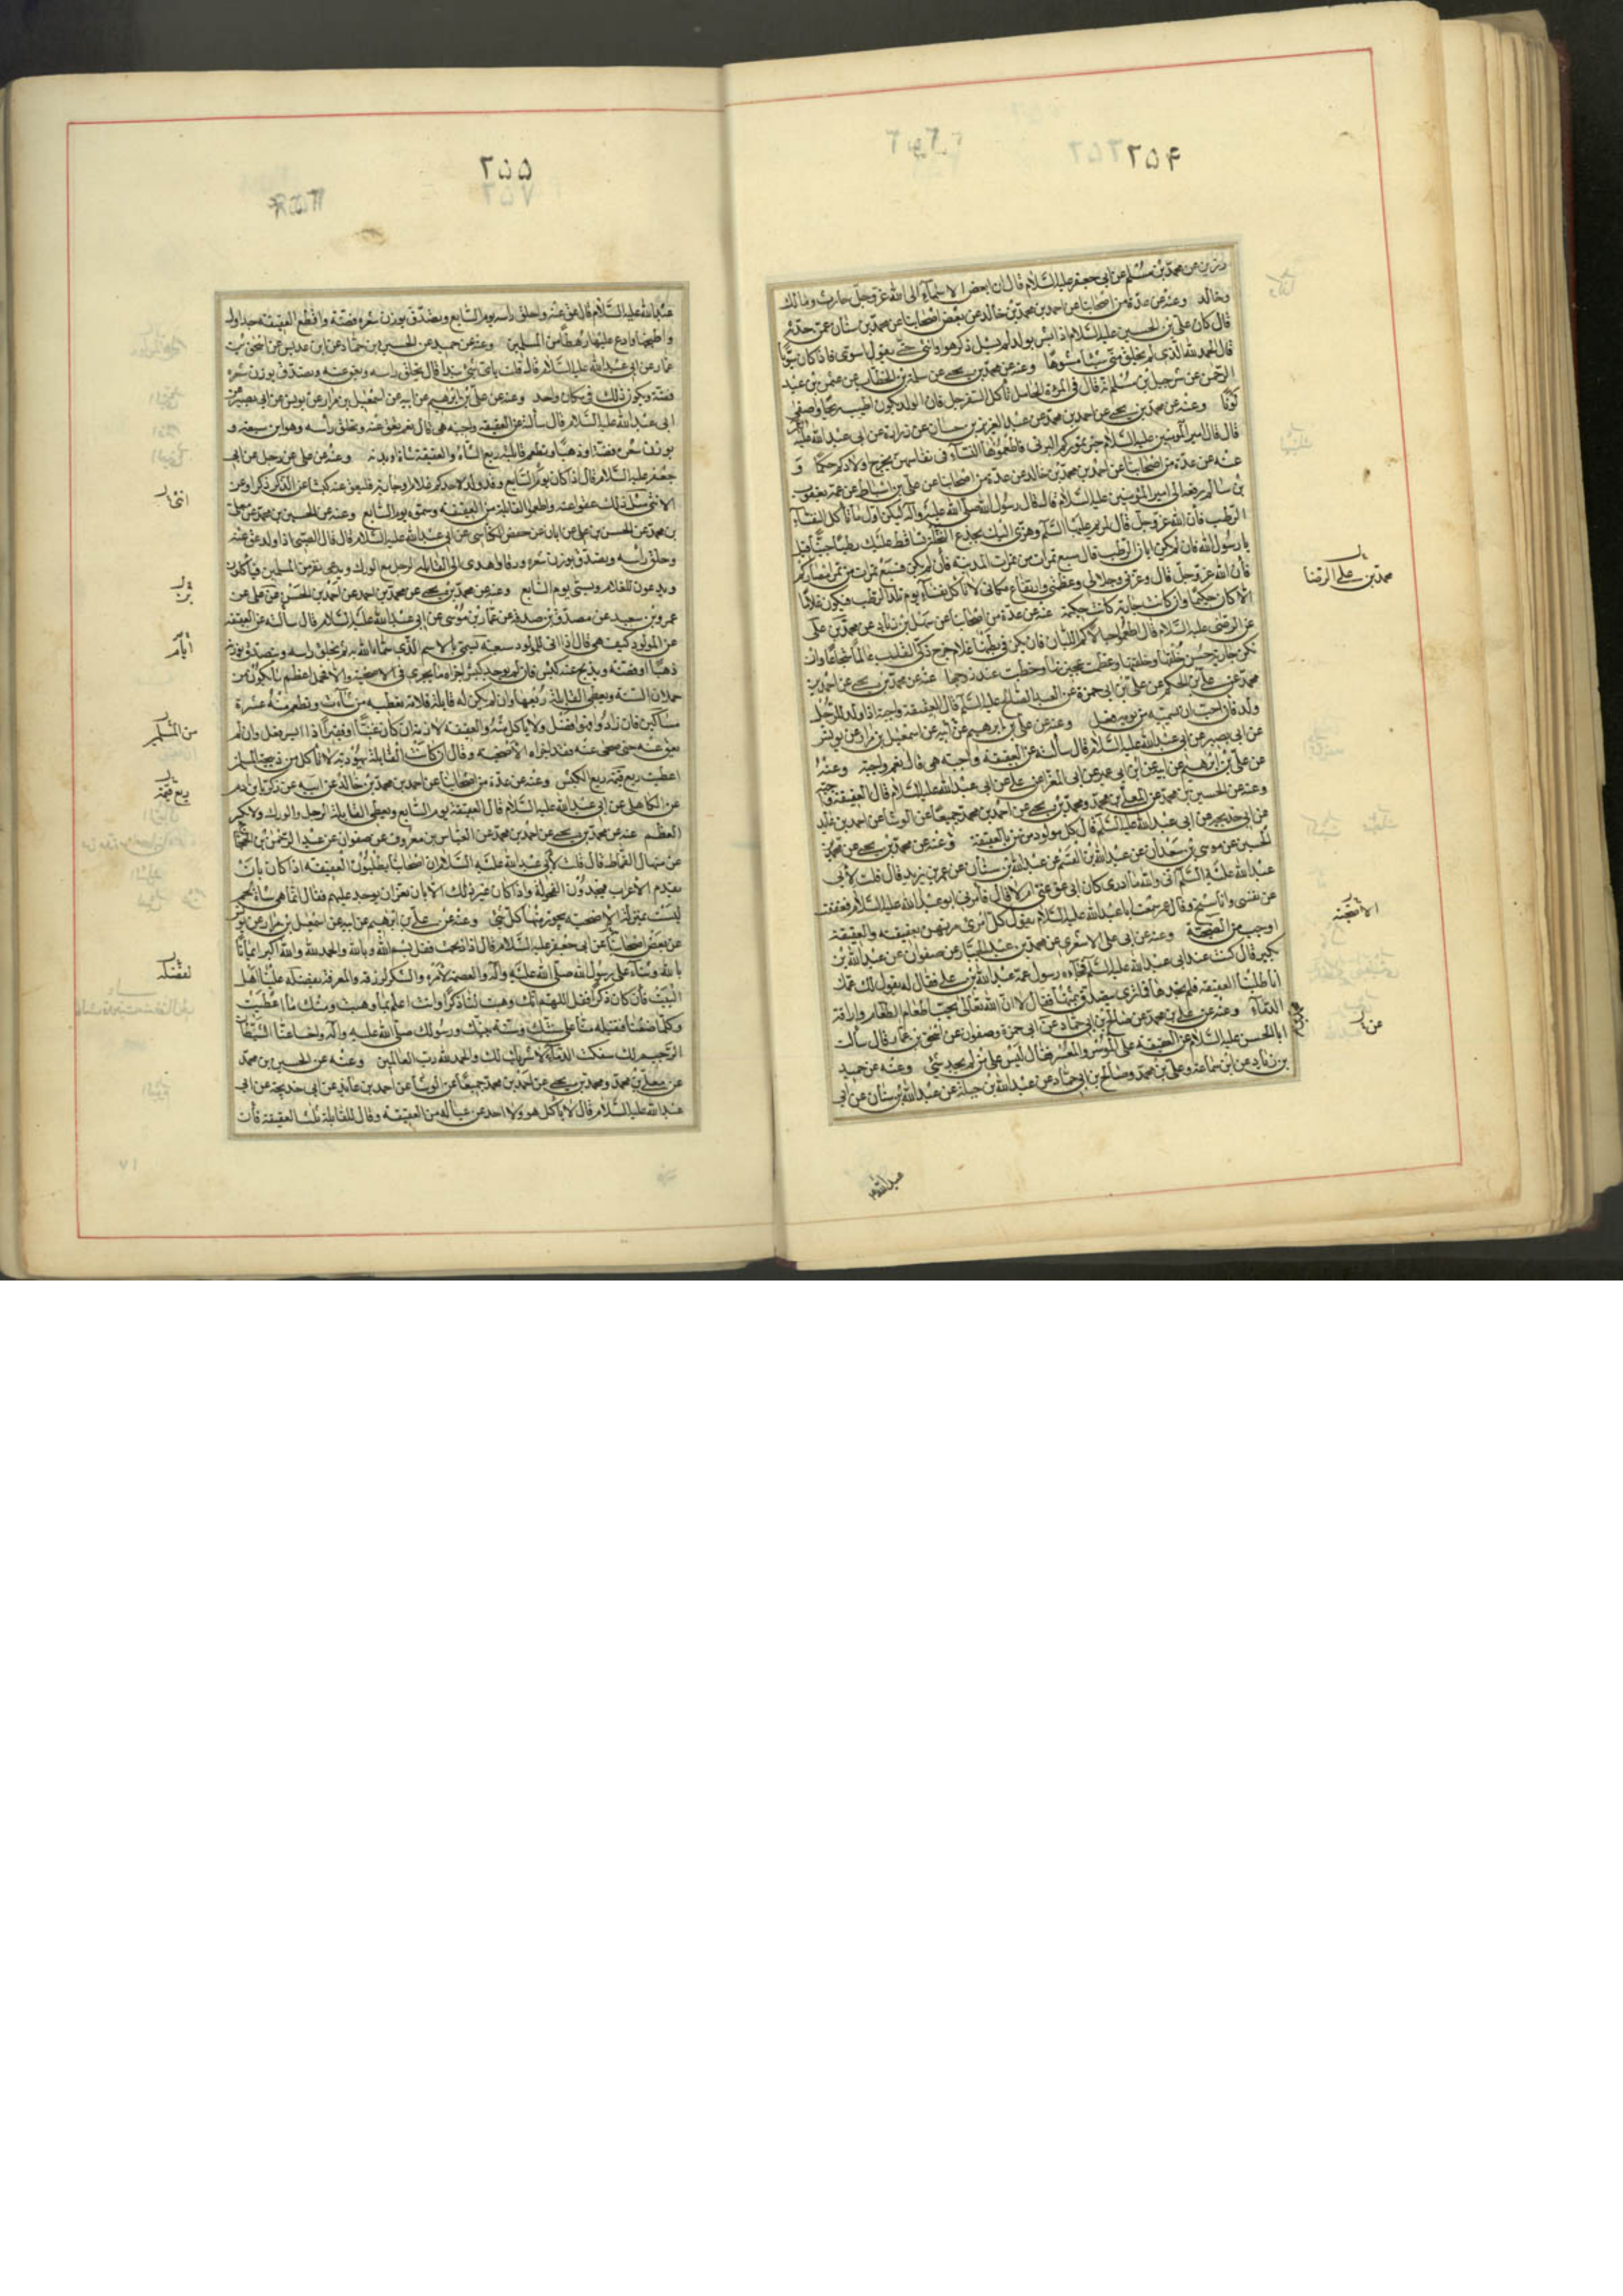 ٢٥۴
رزين عن محمد بن مسلم عن ابي جعفر عليه السلام قال ان ابغض الاسماء الى الله عز وجل حارث ومالك
وخالد وعنه عن عدة من اصحابنا عن احمد بن محمد بن خالد عن بعض اصحابنا عن محمد بن سنان عمن حدثه
قال كان علي بن الحسين عليه السلام اذا بشر بولد لم يسل ذكر هو او انثى حتى يقول اسوى فاذا كان سويا
قال الحمد لله الذي لم يخلق مني شيئا مشوها وعنه عن محمد بن يحيى عن سلمة بن الخطاب عن عثمن بن عبد
الرحمن عن شرحبيل بن مسلم انه قال في المرءة الحامل تأكل السفرجل فان الولد يكون اطيب ريحا واصفى
لونا وعنه عن محمد بن يحيى عن احمد بن محمد عن عبد العزيز بن حسان عن زرارة عن ابي عبد الله عليه
قال قال امير المؤمنين عليه السلام خير تموركم البرني فاطعموها النساء في نفاسهن يخرج اولادكم حكما و
عنه عن عدة من اصحابنا عن احمد بن محمد بن خالد عن عدة من اصحابنا عن علي بن اسباط عن عمه يعقوب
بن سالم رفعه الى امير المؤمنين عليه السلام قال قال رسول الله صلى الله عليه وآله ليكن اول ما تأكل النفساء
الرطب فان الله عز وجل قال لمريم عليها السلم وهزي اليك بجذع النخلة تساقط عليك رطبا جنيا قيل
يا رسول الله فان لم يكن ابان الرطب قال سبع تمرات من تمرات المدينة فان لم يكن فسبع تمرات من تمر امصاركم
فان الله عز وجل قال وعزتي وجلالي وعظمتي وارتفاع مكاني لا تأكل نفساء يوم تلد الرطب فيكون غلاما
الا كان حكيما وان كانت جارية كانت حكيمة عنه عن عدة من اصحابنا عن سهل بن زياد عن محمد بن علي
عن الرضى عليه السلام قال اطعموا حبالاكم اللبان فان يكن في بطنها غلام خرج ذكي القلب عالما شجاعا وان
تكن جارية حسن خلقها وخلقتها وعظمت عجيزتها وحظيت عند زوجها عنه عن محمد بن يحيى عن احمد بن
محمد عن علي بن الحكم عن علي بن ابي حمزة عن العبد الصالح عليه السلم قال العقيقة واجبة اذا ولد للرجل
ولد فان احب ان يسميه من يومه فعل وعنه عن علي بن ابرهيم عن ابيه عن اسمعيل بن مرار عن يونس
عن ابي بصير عن ابي عبد الله عليه السلام قال سألته عن العقيقة واجبة هي قال نعم واجبة وعنه
عن علي بن ابرهيم عن ابيه عن ابن ابي عمير عن ابي المغرا عن علي عن ابي عبد الله عليه السلام قال العقيقة واجبة
وعنه عن الحسين بن محمد عن المعلى بن محمد ومحمد بن يحيى عن احمد بن محمد جميعا عن الوشا عن احمد بن عائذ
عن ابي خديجه عن ابي عبد الله عليه السلم قال كل مولود مرتهن بالعقيقة وعنه عن محمد بن يحيى عن محمد بن
الحسين عن موسى بن سعدان عن عبد الله بن القسم عن عبد الله بن سنان عن عمر بن يزيد قال قلت لابي
عبد الله عليه السلم اني والله ما ادري كان ابي عق عني ام لا قال فأمرني ابو عبد الله عليه السلام فعققت
عن نفسي وانا شيخ وقال عمر سمعت ابا عبد الله عليه السلام يقول كل امرئ مرتهن بعقيقته والعقيقة
اوجب من الضحية وعنه عن ابي علي الاشعري عن محمد بن عبد الجبار عن صفوان عن عبد الله بن
بكير قال كنت عند ابي عبد الله عليه السلم فجاءه رسول عمه عبد الله بن علي فقال له يقول لك عمك
انا طلبنا العقيقة فلم نجدها فما ترى نتصدق بثمنها فقال لا ان الله تعالى يحب اطعام الطعام واراقة
الدماء وعنه عن علي بن محمد عن صالح بن ابي حماد عن ابي حمزة وصفوان عن اسحق بن عمار قال سألت
ابا الحسن عليه السلام عن العقيقة على الموسر والمعسر فقال ليس على من لم يجد شئ وعنه عن حميد
بن زياد عن ابن سماعة وعلي بن محمد وصالح بن ابي حماد عن عبد الله بن جبلة عن عبد الله بن سنان عن ابي
محمد بن علي الرضا
الاضحية
عن
عبد الله
٢٥۵
عبد الله عليه السلام قال عق عنه واحلق راسه يوم السابع وتصدق بوزن شعره فضة واقطع العقيقة جداول
واطبخها وادع عليها رهطا من المسلمين وعنه عن حميد عن الحسين بن حماد عن ابن عديس عن اسحق بن
عمار عن ابي عبد الله عليه السلام قال قلت باي شئ نبدا قال يحلق راسه ويعق عنه ويتصدق بوزن شعره
فضة ويكون ذلك في مكان واحد وعنه عن علي بن ابرهيم عن ابيه عن اسمعيل بن مرار عن يونس عن ابي بصير عن
ابي عبد الله عليه السلام قال سألته عن العقيقة واجبة هي قال نعم يعق عنه ويحلق رأسه وهو ابن سبعة و
يوزن شعره فضة او ذهبا ويطعم قابله ربع الشاة والعقيقة شاة او بدنة وعنه عن علي عن رجل عن ابي
جعفر عليه السلام قال اذا كان يوم السابع وقد ولد لاحدكم غلام او جارية فليعق عنه كبشا عن الذكر ذكرا وعن
الانثى مثل ذلك عقوا عنه واطعموا القابلة من العقيقة وسموه يوم السابع وعنه عن الحسين بن محمد عن معلى
بن محمد عن الحسن بن علي عن ابان عن حفص الكناسي عن ابي عبد الله عليه السلام قال قال الصبي اذا ولد عق عنه
وحلق رأسه وتصدق بوزن شعره ورقا واهدى الى القابلة الرجل مع الورك ويدعى نفر من المسلمين فيأكلون
ويدعون للغلام ويسمى يوم السابع وعنه عن محمد بن يحيى عن محمد بن احمد عن احمد بن الحسن بن علي عن
عمرو بن سعيد عن مصدق بن صدقة عن عمار بن موسى عن ابي عبد الله عليه السلام قال سألته عن العقيقة
عن المولود كيف هي قال اذا اتى للمولود سبعة تسمى بالاسم الذي سماه الله به ثم يحلق راسه ويتصدق بوزنه
ذهبا او فضة ويذبح عنه كبش فان لم يوجد كبش اجزاه ما يجزي في الاضحية والا فحمل اعظم ما يكون من
حملان السنة ويعطى القابلة ربعها وان لم يكن له قابلة فلامه تعطيه من شاءت وتطعم منه عشرة
مساكين فان زادوا فهو افضل ولا يأكل منه والعقيقة لازمة ان كان غنيا او فقيرا اذا ايسر فعل وان لم
يعق عنه حتى ضحى عنه فقد اجزاه الاضحية وقال ان كانت القابلة يهودية لا تأكل من ذبيحة المسلمين
اعطيت ربع قيمة ربع الكبش وعنه عن عدة من اصحابنا عن احمد بن محمد بن خالد عن ابيه عن زكريا بن ادم
عن الكاهلي عن ابي عبد الله عليه السلام قال العقيقة يوم السابع ويعطى القابلة الرجل والورك ولا يكسر
العظم عنه عن محمد بن يحيى عن احمد بن محمد عن العباس بن معروف عن صفوان عن عبد الرحمن بن الحجاج
عن منهال القماط قال قلت لابي عبد الله عليه السلام ان اصحابنا يطلبون العقيقة اذا كان ابان
يقدم الاعراب فيجدون الفحولة واذا كان غير ذلك الابان تعز ان يوجد عليهم فقال انما هي شاة لحم
ليست بمنزلة الاضحية يجوز منها كل شئ وعنه عن علي بن ابرهيم عن ابيه عن اسمعيل بن مرار عن يونس
عن بعض اصحابنا عن ابي جعفر عليه السلام قال اذا ذبحت فقل بسم الله وبالله والحمد لله والله اكبر ايمانا
بالله وثناء على رسول الله صلى الله عليه وآله والعصمة لامره والشكر لرزقه والمعرفة بفضله علينا اهل
البيت فان كان ذكرا فقل اللهم انك وهبت لنا ذكرا وانت اعلم بما وهبت ومنك ما اعطيت
وكلما صنعنا فتقبله منا على سنتك وسنة نبيك ورسولك صلى الله عليه وآله واخسا عنا الشيطان
الرجيم لك سفكت الدماء لا شريك لك والحمد لله رب العالمين وعنه عن الحسين بن محمد
عن معلى بن محمد ومحمد بن يحيى عن احمد بن محمد جميعا عن الوشا عن احمد بن عائذ عن ابي خديجة عن ابي
عبد الله عليه السلام قال لا يأكل هو ولا احد من عياله من العقيقة وقال للقابلة ثلث العقيقة فان
ايام
من المسلمين
ربع قيمة
لفضله